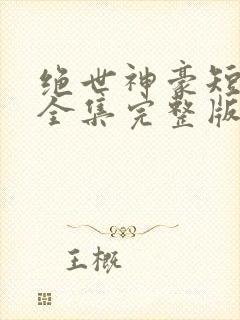 绝世神豪短
全集完整版
王概